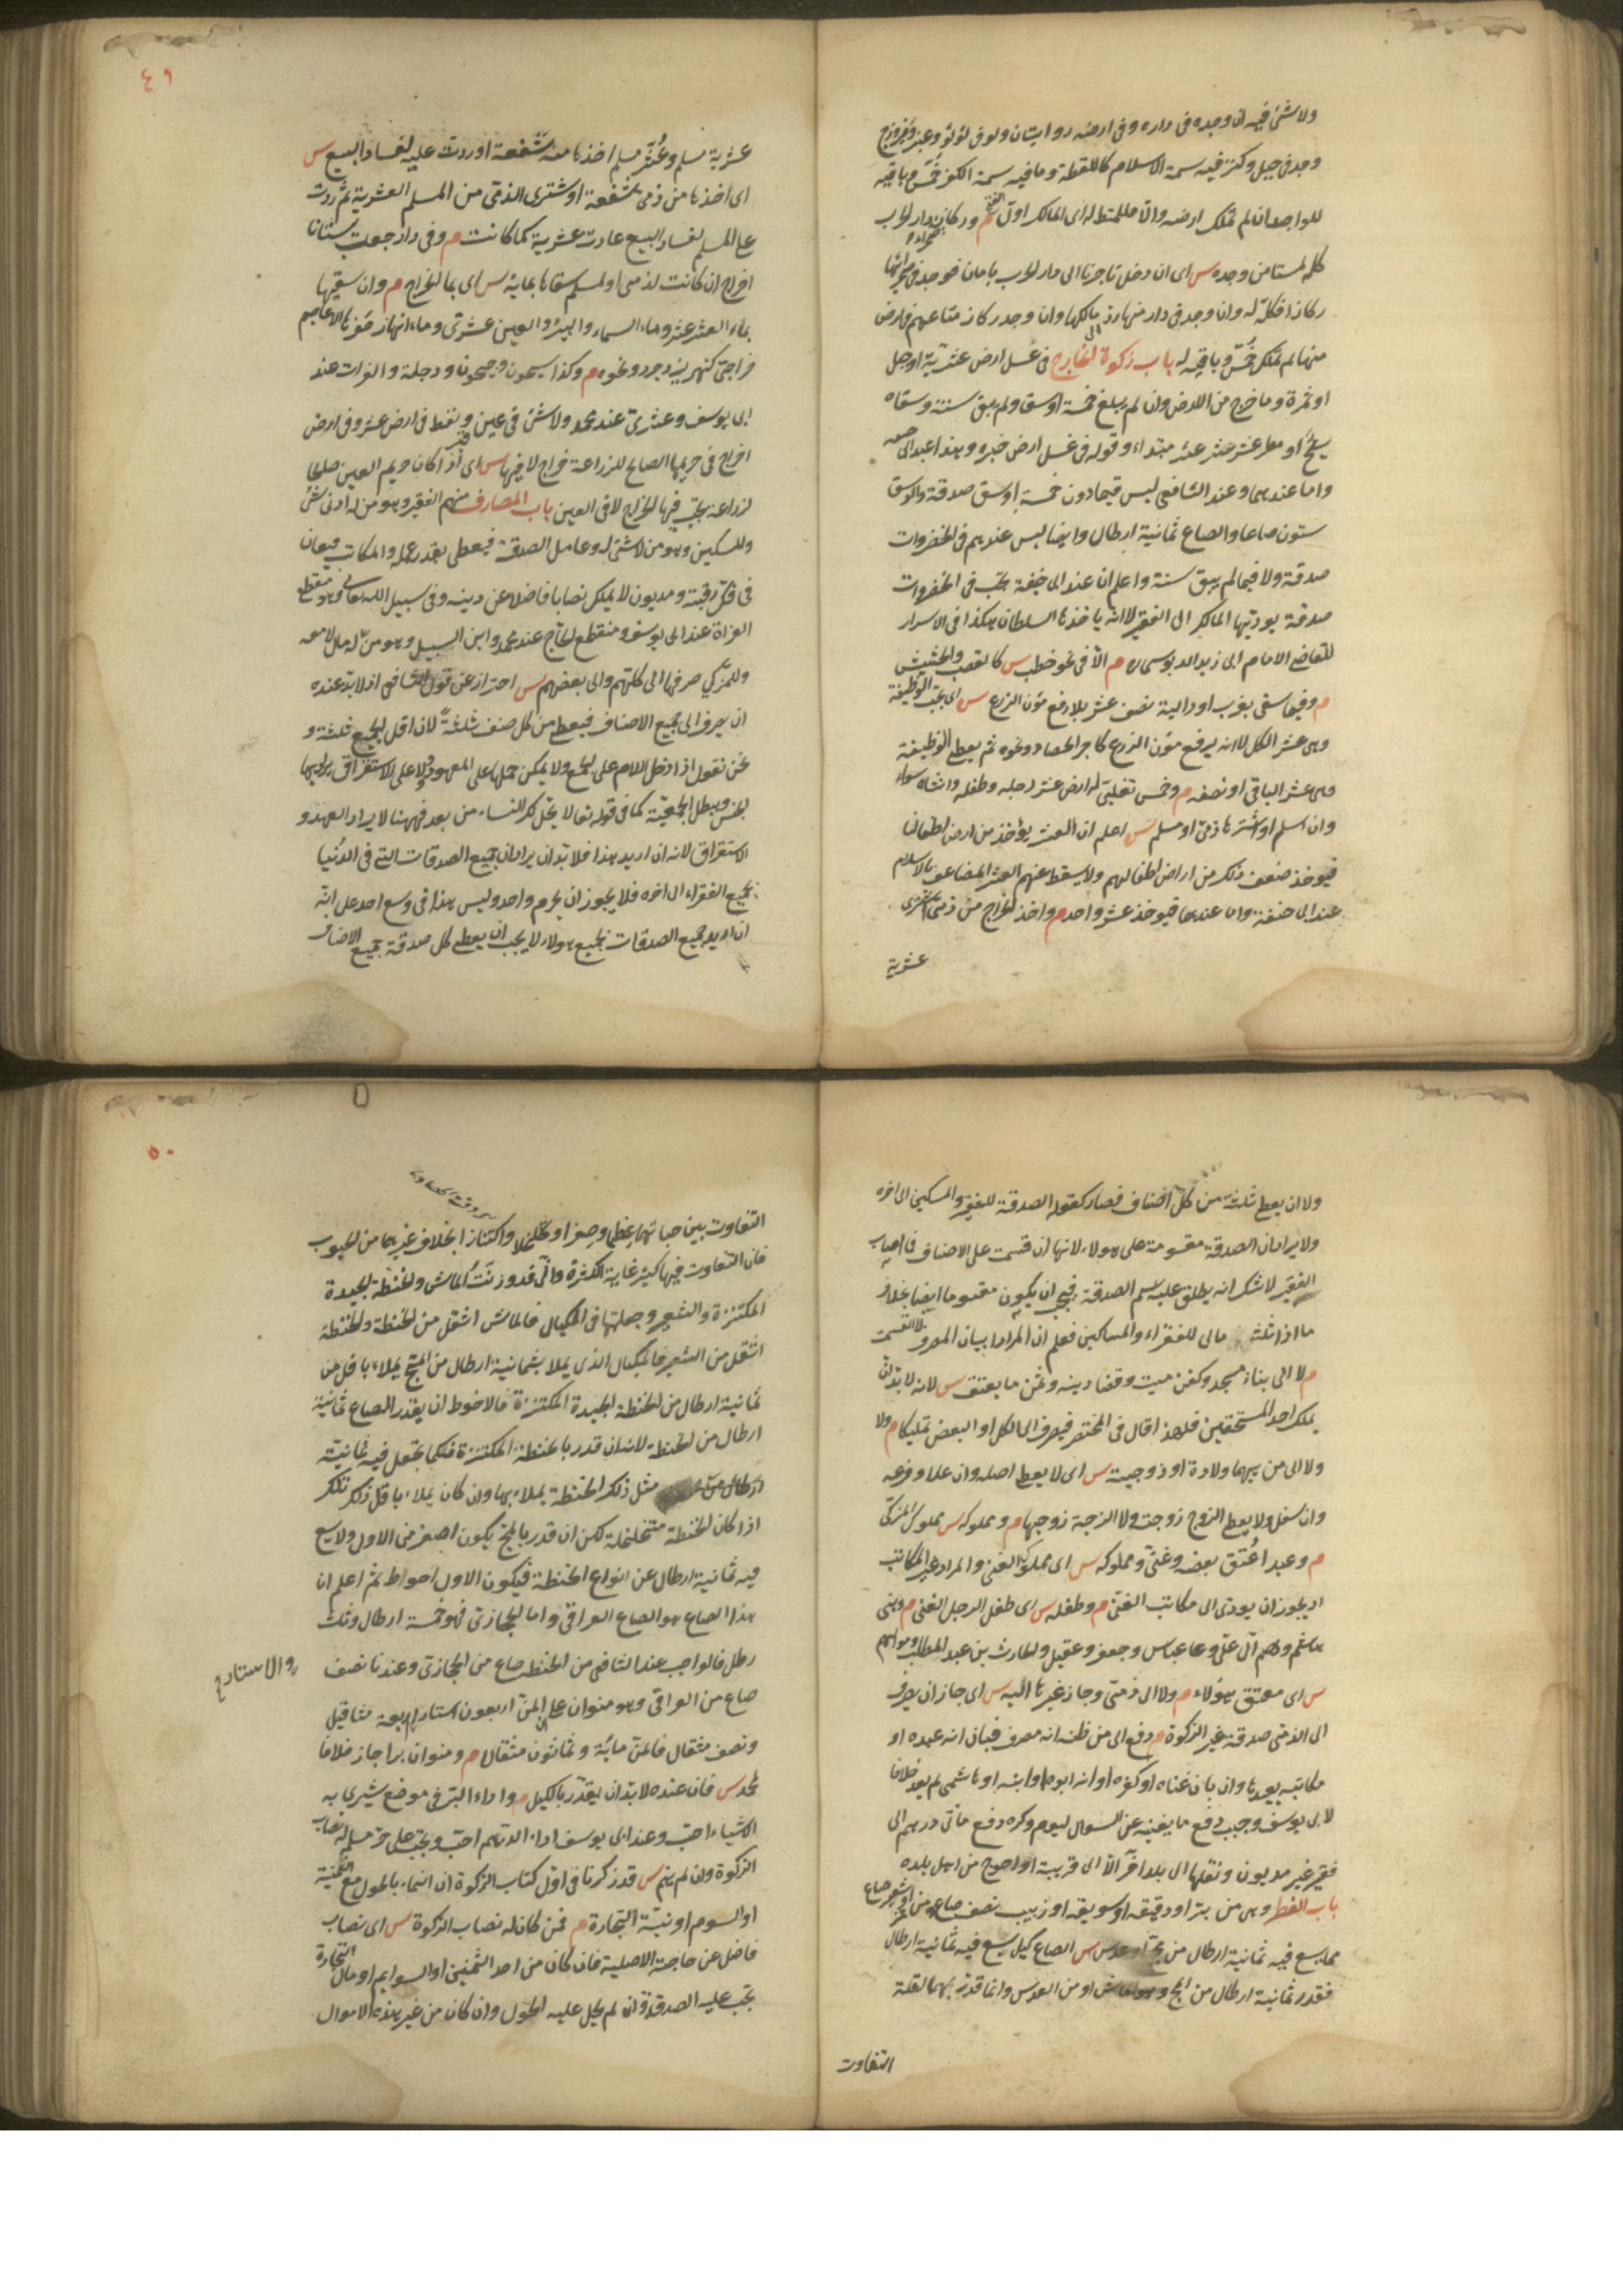 ولا شئ فيه ان وجده فى داره وفى ارضه روايتان ولا فى لؤلؤ وعنبر وفيروزج
وجد فى جبل وكنز فيه سمة الاسلام كاللقطة وما فيه سمة الكفر خمس وباقيه
للواجد ان لم تملك ارضه والا فللمختط له اى المالك اول الفتح م وركاز صحراء دار الحرب
كله لمستامن وجده س اى ان دخل تاجرنا الى دار الحرب بامان فوجد فى صحرائها
ركازا فكله له وان وجد فى دار منها رد الى مالكها وان وجد ركاز متاعهم فى ارض
منها لم تملك خمس وباقيه له باب زكوة الخارج فى عسل ارض عشرية او جبل
او ثمرة وما خرج من الارض وان لم يبلغ خمسة اوسق ولم يبق سنة وسقاه
سيح او مطر عشر عشر مبتداء وقوله فى عسل ارض خبره وهذا عند ابى حنيفة
واما عندهما وعند الشافعى ليس فيما دون خمسة اوسق صدقة والوسق
ستون صاعا والصاع ثمانية ارطال وايضا ليس عندهم فى الخضروات
صدقة ولا فيما لم يبق سنة واعلم ان عند ابى حنيفة تجب فى الخضروات
صدقة يوديها المالك الى الفقير لا انه ياخذها السلطان هكذا فى الاسرار
للقاضى الامام ابى زيد الدبوسى ره م الا فى نحو حطب س كالقصب والحشيش
م وفيما سقى بغرب او دالية نصف عشر بلا رفع مؤن الزرع س اى تجب الوظيفة
وهى عشر الكل لا انه يرفع مؤن الزرع كاجر الحصاد ونحوه ثم يعطى الوظيفة
وهى عشر الباقى او نصفه م وخمس تغلبى له ارض عشر رجله وطفله وانثاه سواء
وان اسلم او اشترها ذمى او مسلم س اعلم ان العشر يؤخذ من ارض اطفالنا
فيوخذ ضعف ذلك من اراضى اطفالهم ولا يسقط عنهم العشر المضاعف بالاسلام
عند ابى حنيفة واما عندهما فيوخذ عشر واحد م واخذ الخراج من ذمى اشترى
عشرية
٤٩
عشرية مسلم وعشر مسلم اخذها منه شفعة او ردت عليه لفساد البيع س
اى اخذها من ذمى شفعة او شترى الذمى من المسلم العشرية ثم ردت
على المسلم لفساد البيع عادت عشرية كما كانت م وفى دار جعلت بستانا
خراج ان كانت لذمى او لمسلم سقاها بمائه س اى بماء الخراج م وان سقيها
بماء العشر عشر وماء السماء والبئر والعين عشرى وماء انهار حفرها الاعاجم
خراجى كنهر يزدجرد ونحوه م وكذا سيحون وجيحون ودجلة والفرات عند
ابى يوسف وعشرى عند محمد ولا شئ فى عين قير ونفط فى ارض عشر وفى ارض
خراج فى حريمها الصالح للزراعة خراج لا فيها س اى اذا كان حريم العين صالحا
لزراعة يجب فيها الخراج لا فى العين باب المصارف منهم الفقير وهو من له ادنى شئ
والمسكين وهو من لا شئ له وعامل الصدقة فيعطى بقدر عمله والمكاتب فيعان
فى فك رقبته ومديون لا يملك نصابا فاضلا عن دينه وفى سبيل الله تعالى وهو منقطع
الغزاة عند ابى يوسف ومنقطع الحاج عند محمد وابن السبيل وهو من له مال لا معه
وللمزكى صرفها الى كلهم والى بعضهم س احتراز عن قول الشافعى اذ لا بد عنده
ان يصرف الى جميع الاصناف فيعطى من كل صنف ثلثة لان اقل الجميع ثلثة و
نحن نقول اذا دخل اللام على الجمع ولا يمكن حملها على المعهود ولا على الاستغراق يراد بها
الجنس ويبطل الجمعية كما فى قوله تعالى لا يحل لك النساء من بعد فههنا لا يراد العهد و
الاستغراق لانه ان اريد هذا فلا بد ان يراد ان جميع الصدقات التى فى الدنيا
لجميع الفقراء الى اخره فلا يجوز ان يحرم واحد وليس هذا فى وسع احد على انه
ان اريد جميع الصدقات لجميع هولاء لا يجب ان يعطى كل صدقة جميع الاصناف
ولا ان يعطى ثلثة من كل اصناف فصار كقوله الصدقة للفقير والمسكين الى اخره
ولا يراد ان الصدقة مقسومة على هولاء لانها ان قسمت على الاصناف فما اصاب
الفقير لا شك انه يطلق عليه اسم الصدقة فيجب ان يكون مقسوما ايضا بخلاف
ما اذا ثلث مالى للفقراء والمساكين فعلم ان المراد بيان المصرف لا القسمة
م لا الى بناء مسجد وكفن ميت وقضا دينه وثمن ما يعتق س لانه لا بد ان
يملك احد المستحقين فلهذا قال فى المختصر فيصرف الى الكل او البعض تمليكا م ولا
ولا الى من بينهما ولادة او زوجية س اى لا يعطى اصله وان علا وفرعه
وان سفل ولا يعطى الزوج زوجته ولا الزوجة زوجها م ومملوكه س مملوك المزكى
م وعبد اعتق بعضه وغنى ومملوكه س اى مملوك الغنى والمراد غير المكاتب
اذ يجوز ان يودى الى مكاتب الغنى م وطفله س اى طفل الرجل الغنى م وبنى
هاشم وهم آل على وعباس وجعفر وعقيل والحارث بن عبد المطلب ومواليهم
س اى معتق هؤلاء م ولا الى ذمى وجاز غيرها اليه س اى جاز ان يصرف
الى الذمى صدقة غير الزكوة م دفع الى من ظن انه مصرف فبان انه عبده او
مكاتبه يعيدها وان بان غناه او كفره او انه ابوه او ابنه او هاشمى لم يعد خلافا
لابى يوسف وحبب دفع ما يغنيه عن السوال ليوم وكره دفع مأتى درهم الى
فقير غير مديون ونقلها الى بلد اخر الا الى قريبه او احوج من اهل بلده
باب الفطر وهى من بر او دقيقه او سويقه او زبيب نصف صاع ومن تمر او شعير صاع
مما يسع فيه ثمانية ارطال من مج او عدس س الصاع كيل يسع فيه ثمانية ارطال
فقدر ثمانية ارطال من المج وهو الماش او من العدس وانما قدر بهما لقلة
التفاوت
٥٠
التفاوت بين حباتهما عظما وصغرا وتخلخلا واكتنازا بخلاف غيرهما من الحبوب
فان التفاوت فيها كثير غاية الكثرة وانى قد وزنت الماش والحنطة الجيدة
المكتنزة والشعير وجعلتها فى المكيال فالماش اثقل من الحنطة والحنطة
اثقل من الشعير فالمكيال الذى يملا بثمانية ارطال من المج يملاء باقل من
ثمانية ارطال من الحنطة الجيدة المكتنزة فالاحوط ان يقدر الصاع ثمانية
ارطال من الحنطة لانه ان قدر بالحنطة المكتنزة فكلما يجعل فيه ثمانية
ارطال من مثل ذلك الحنطة يملاء بها وان كان يملاء باقل ذلك تلك
اذا كان الحنطة متخلخلة لكن ان قدر بالمج يكون اصغر من الاول ولا يسع
فيه ثمانية ارطال عن انواع الحنطة فيكون الاول احوط ثم اعلم ان
هذا الصاع هو الصاع العراقى واما الحجازى فهو خمسة ارطال وثلث
رطل فالواجب عند الشافعى من الحنطة صاع من الحجازى وعندنا نصف
صاع من العراقى وهو منوان على ان المن اربعون استار اربعة مثاقيل
والاستار ع
ونصف مثقال فالمن مائة وثمانون مثقال م ومنوان برا جاز خلافا
لمحمد س فان عنده لا بد ان يقدر بالكيل م واداء البر فى موضع يشترى به
الاشياء احب وعند ابى يوسف اداء الدرهم احب وتجب على حر مسلم له نصاب
الزكوة وان لم ينم س قد ذكرنا فى اول كتاب الزكوة ان النماء بالحول مع الثمنية
او السوم او نية التجارة م فمن كان له نصاب الزكوة س اى نصاب
فاضل عن حاجته الاصلية فان كان من احد الثمنين او السوايم او مال التجارة
تجب عليه الصدقة وان لم يحل عليه الحول وان كان من غير هذه الاموال